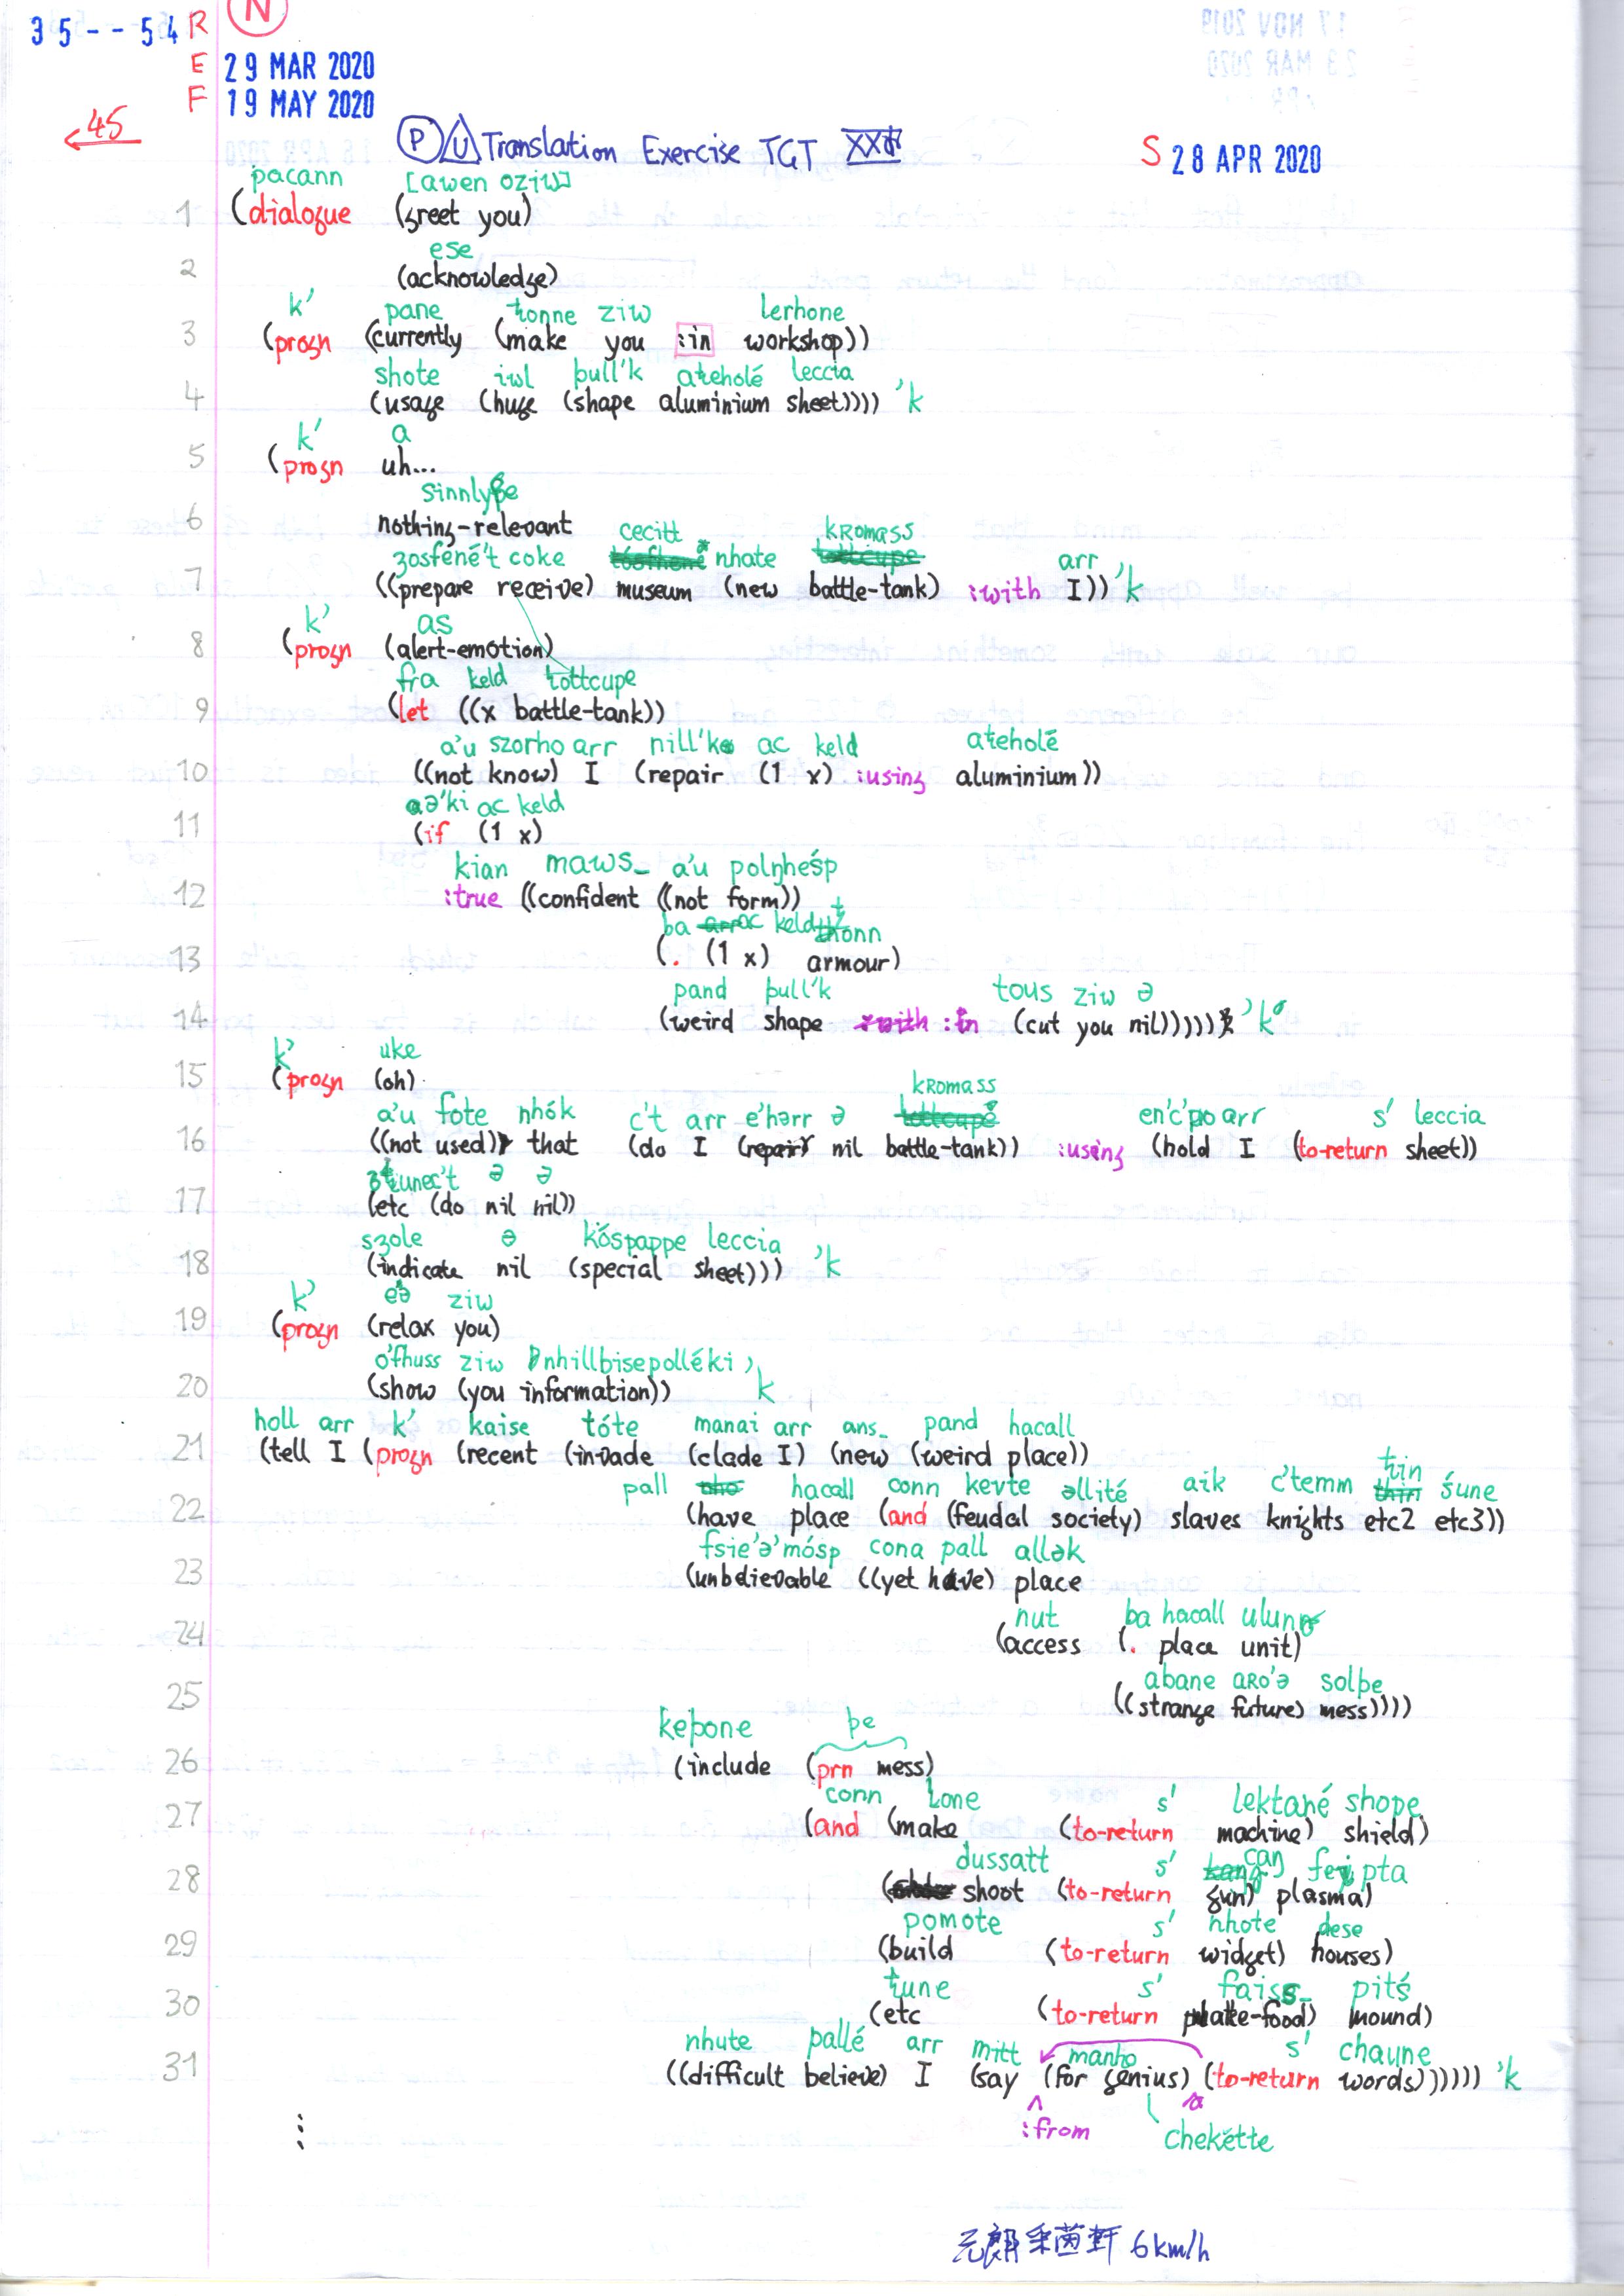 35--54 R N
E 29 MAR 2020
F 19 MAY 2020
45
P U Translation Exercise TGT
S 28 APR 2020
pacann [awen oziw]
1 (dialogue (greet you)
ese
2 (acknowledge)
k' pane tonne ziw lerhone
3 (progn (currently (make you :in workshop))
shote iwl þull'k ateholé leccia
4 (usage (huge (shape aluminium sheet)))) 'k
k' a
5 (progn uh...
sinnlyþe
6 nothing-relevant
zosfené't coke cecitt nhate kromass arr 'k
7 ((prepare receive) museum (new battle-tank) :with I))
k' as
8 (progn (alert-emotion)
fra keld tottcupe
9 (let ((x battle-tank))
a'u szorho arr nill'k ac keld ateholé
10 ((not know) I (repair (1 x) :using aluminium))
aə'ki ac keld
11 (if (1 x)
kian maws_ a'u polŋheśp
12 :true ((confident ((not form))
ba ac keld
13 (. (1 x) armour)
pand þull'k tous ziw ə
14 (weird shape :in (cut you nil))))) 'k
k' uke
15 (progn (oh)
a'u fote nhók c't arr e'hərr ə kromass en'c'po arr s' leccia
16 ((not used) that (do I (repair nil battle-tank)) :using (hold I (to-return sheet))
ə ə
17 (etc (do nil nil))
szole ə kóspappe leccia
18 (indicate nil (special sheet))) 'k
k' eə ziw
19 (progn (relax you)
o'fhuss ziw nhillbisepolléki 'k
20 (show (you information))
holl arr k' kaise tóte manai arr ans_ pand hacall
21 (tell I (progn (recent (invade (clade I) (new (weird place))
pall hacall conn kevte əllité aik c'temm tin śune
22 (have place (and (feudal society) slaves knights etc2 etc3))
fsie'ə'mósp cona pall allək
23 (unbelievable ((yet have) place
nut ba hacall ulun
24 (access (. place unit)
abane aro'ə solþe
25 ((strange future) mess))))
keþone þe
26 (include (prn mess)
conn tone s' lektané shope
27 (and (make (to-return machine) shield)
dussatt s' can pta
28 (shoot (to-return gun) plasma)
pomote s' nhote dese
29 (build (to-return widget) houses)
tune s' faiss_ pitś
30 (etc (to-return make-food) mound)
nhute pallé arr mitt manho s' chaune
31 ((difficult believe) I (say (for genius) (to-return words)))))) 'k
:from chekétte
⋮
元朗采茵軒 6km/h